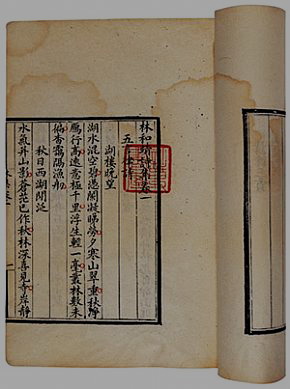 林和靖詩集卷一
五言律詩
湖樓晚望
湖水混空碧憑闌凝睇勞夕寒山翠重秋淨
鳥行高遠意極千里浮生輕一毫叢林數未
徧杳靄隔漁舠
秋日西湖閒泛
水氣并山影蒼茫已作秋林深喜見寺岸靜